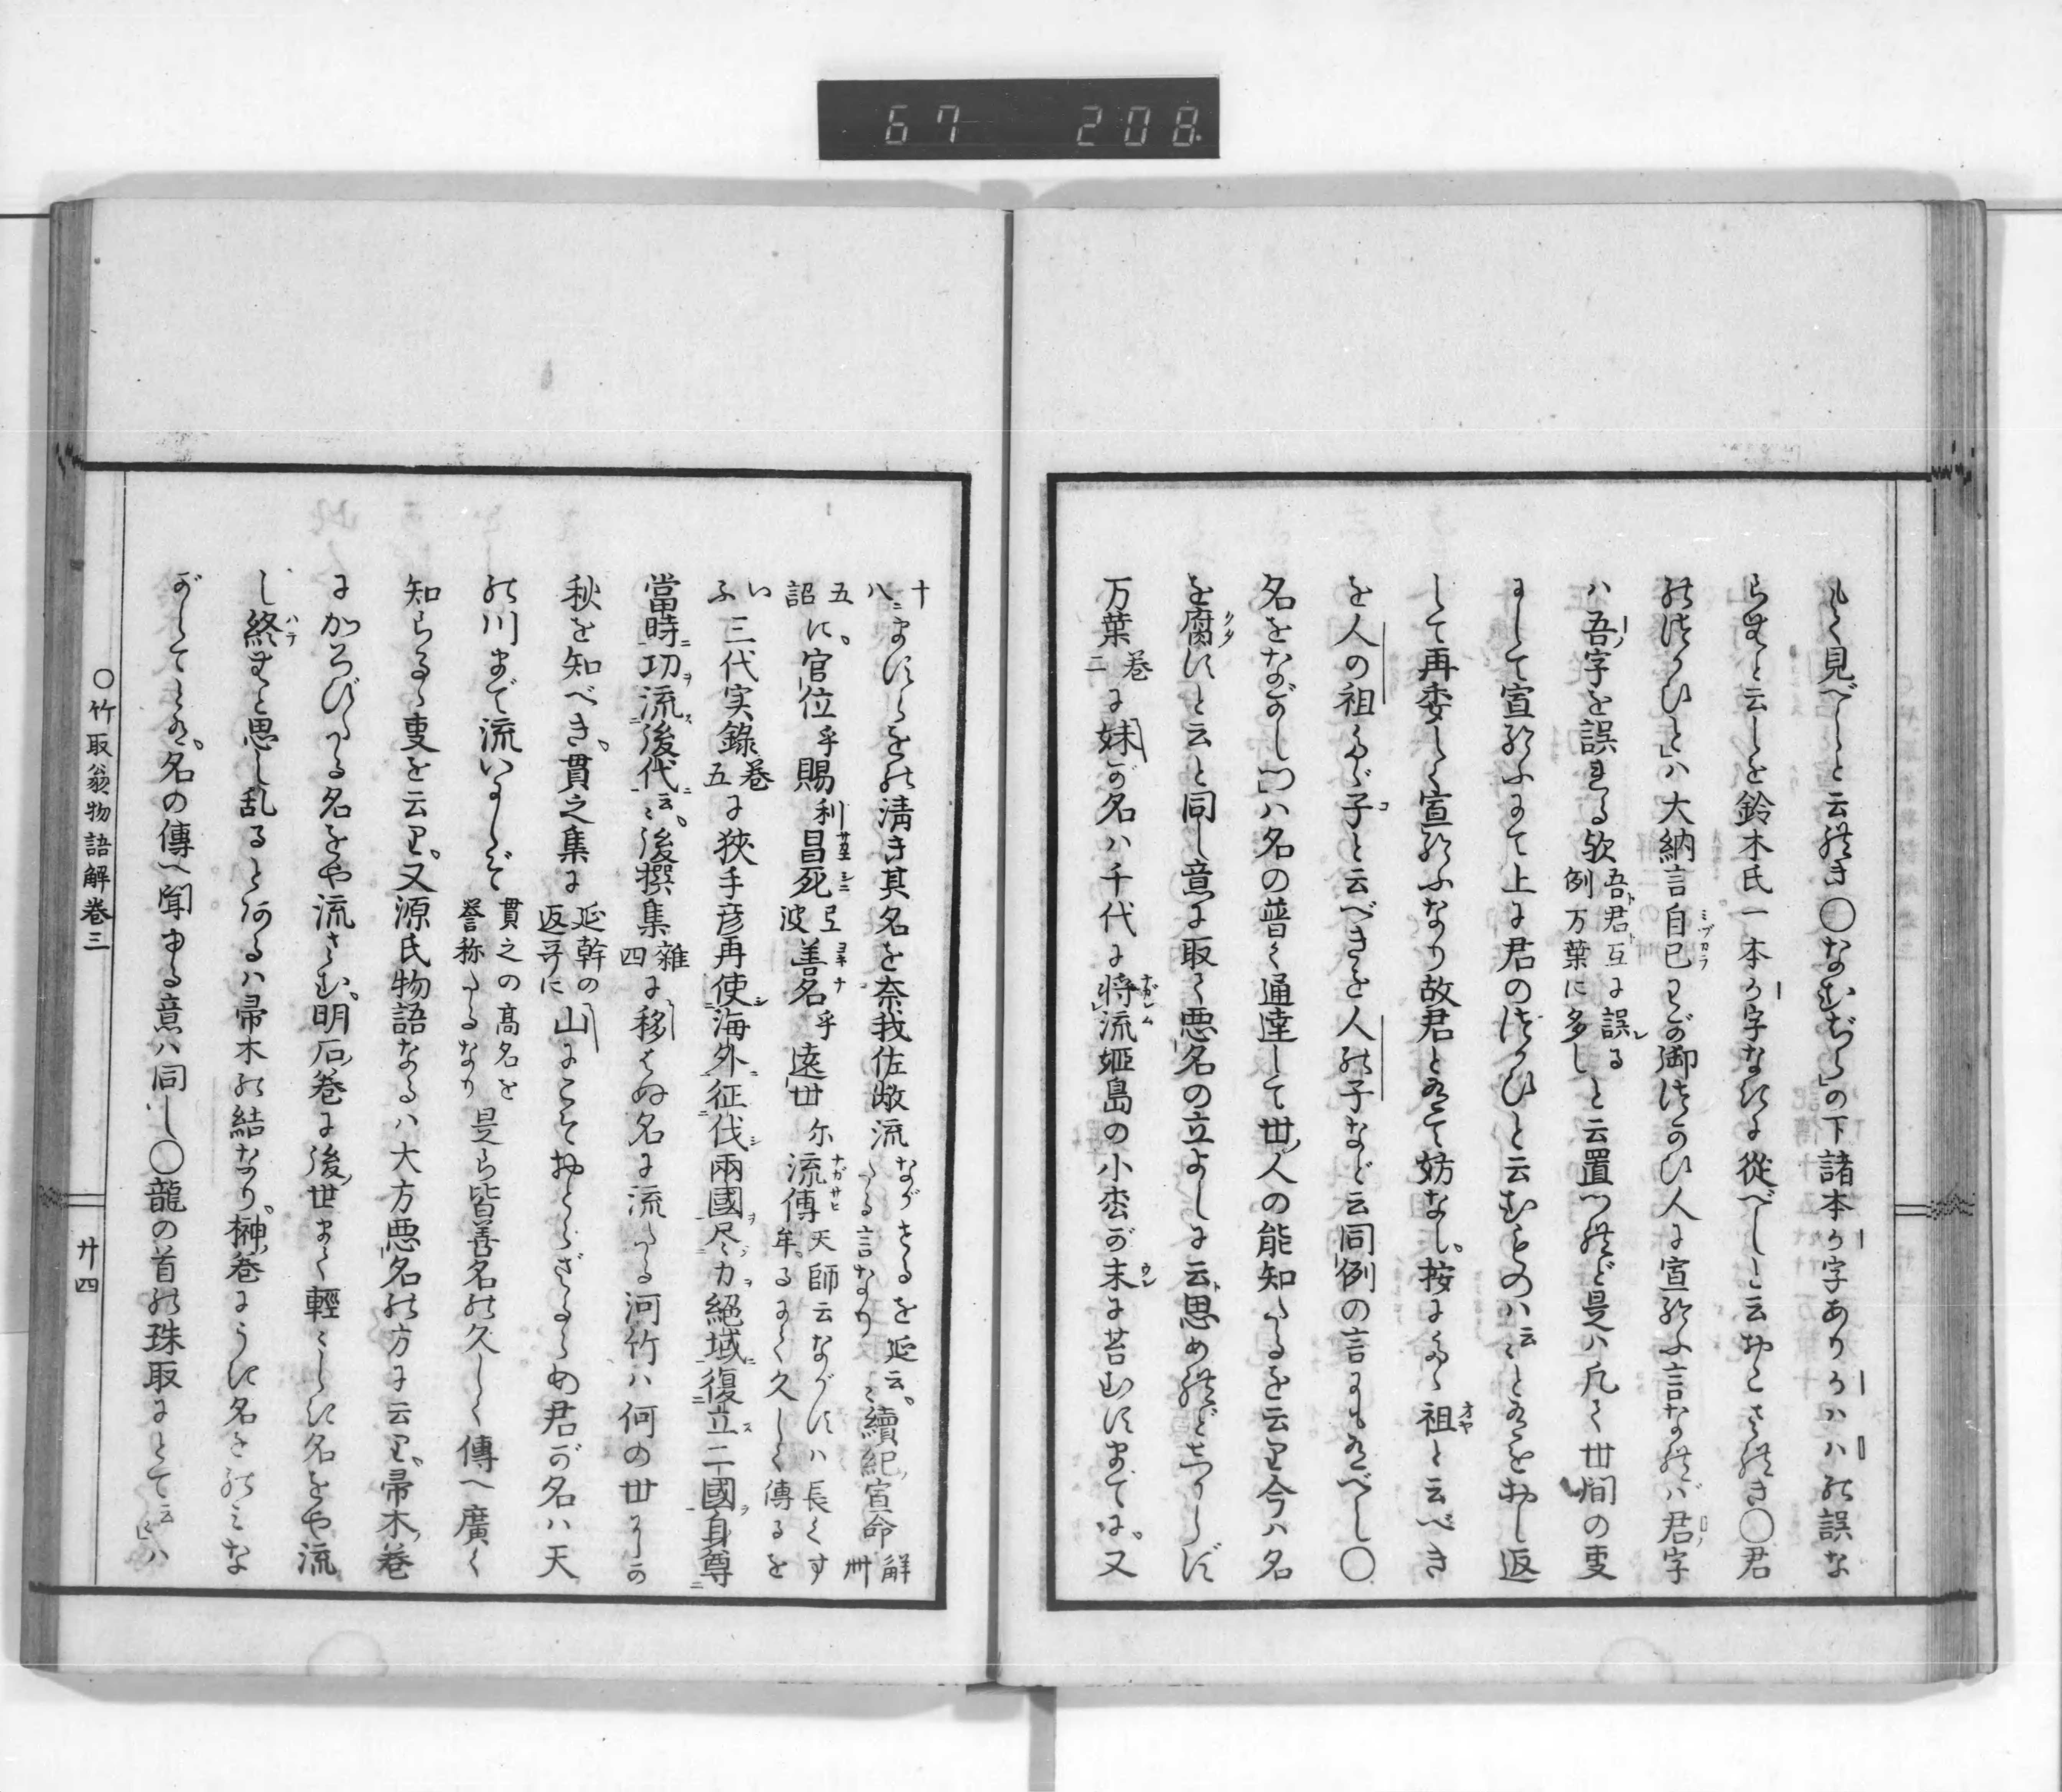 67 208
もく見べしと云れき〇なむぢら」の下諸本か字ありかハハの誤な
らむと云しを鈴木氏一本か字なきに從べしと云おこされき〇君
の使ひと」ハ大納言自已わが御使のひ人に宣給ふ言なれバ君字
ハ吾字を誤れる欤吾君互に誤る例万葉に多しと云置つれど是ハ凡て世間の叓
にして宣給ふにて上に君の使ひと云むものハ云〻とあるをおし返
して再委しく宣給ふなり故君とありて妨なし。按にたゞ祖と云べき
を人の祖たゞ子と云べきを人の子など云同例の言にもあべし〇
名をながしつ」ハ名の普く通達して世人の能知たるを云り今ハ名
を腐にと云と同し意に取て悪名の立よしに云思めれどしからず
万葉巻二に妹が名ハ千代に将流姫島の小松が末に苔むすまでに。又
十八にますらをの清き其名を奈我佐敝流ながせるを延たる言なり云〻。續紀宣命解卅
五詔に。官位乎賜利昌死弖波善名乎遠世尓流傳牟。天師云ながすハ長くするにて久しく傳るを
いふ三代実錄巻五に狹手彦再使海外征伐兩國尽力絕域復立二國身尊
當時功流後代云〻。後撰集雜四に移らぬ名に流たる河竹ハ何の世にしか
秋を知べき。貫之集に延幹の返哥に山にこそおとらざるらめ君が名ハ天
の川まで流いにしぞ貫之の高名を誉称たるなり是ら皆善名の久しく傳へ廣く
知らるゝ叓を云り。又源氏物語なるハ大方悪名の方に云り。帚木巻
にかろびたる名をや流さむ。明石巻に後世まで輕〻しき名をや流
し終むと思し乱るとあるハ帚木の結なり。榊巻にうき名をのミな
がしてとある。名の傳へ聞ゆる意ハ同し〇龍の首の珠取にとて云〻ハ
〇竹取翁物語解巻三
廿四